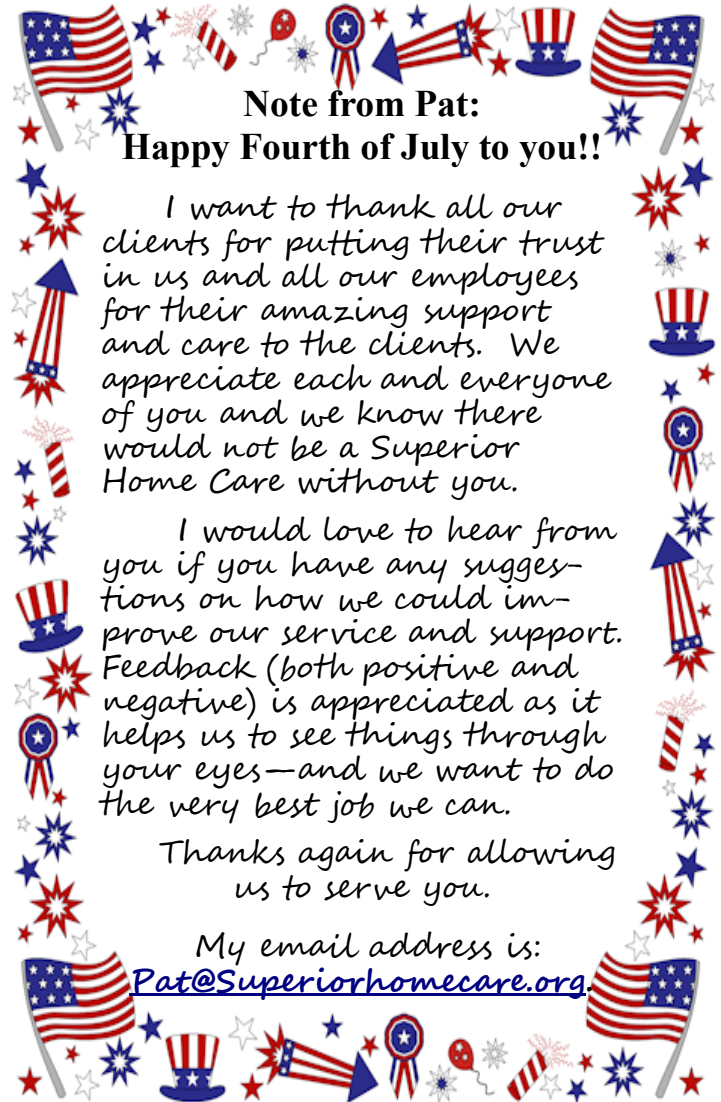 Note from Pat:
Happy Fourth of July to you!!
I want to thank all our
clients for putting their trust
in us and all our employees
for their amazing support
and care to the clients.  We
appreciate each and everyone
of you and we know there
would not be a Superior
Home Care without you.
I would love to hear from
you if you have any sugges-
tions on how we could im-
prove our service and support.
Feedback (both positive and
negative) is appreciated as it
helps us to see things through
your eyes—and we want to do
the very best job we can.
Thanks again for allowing
us to serve you.
My email address is:
Pat@Superiorhomecare.org.